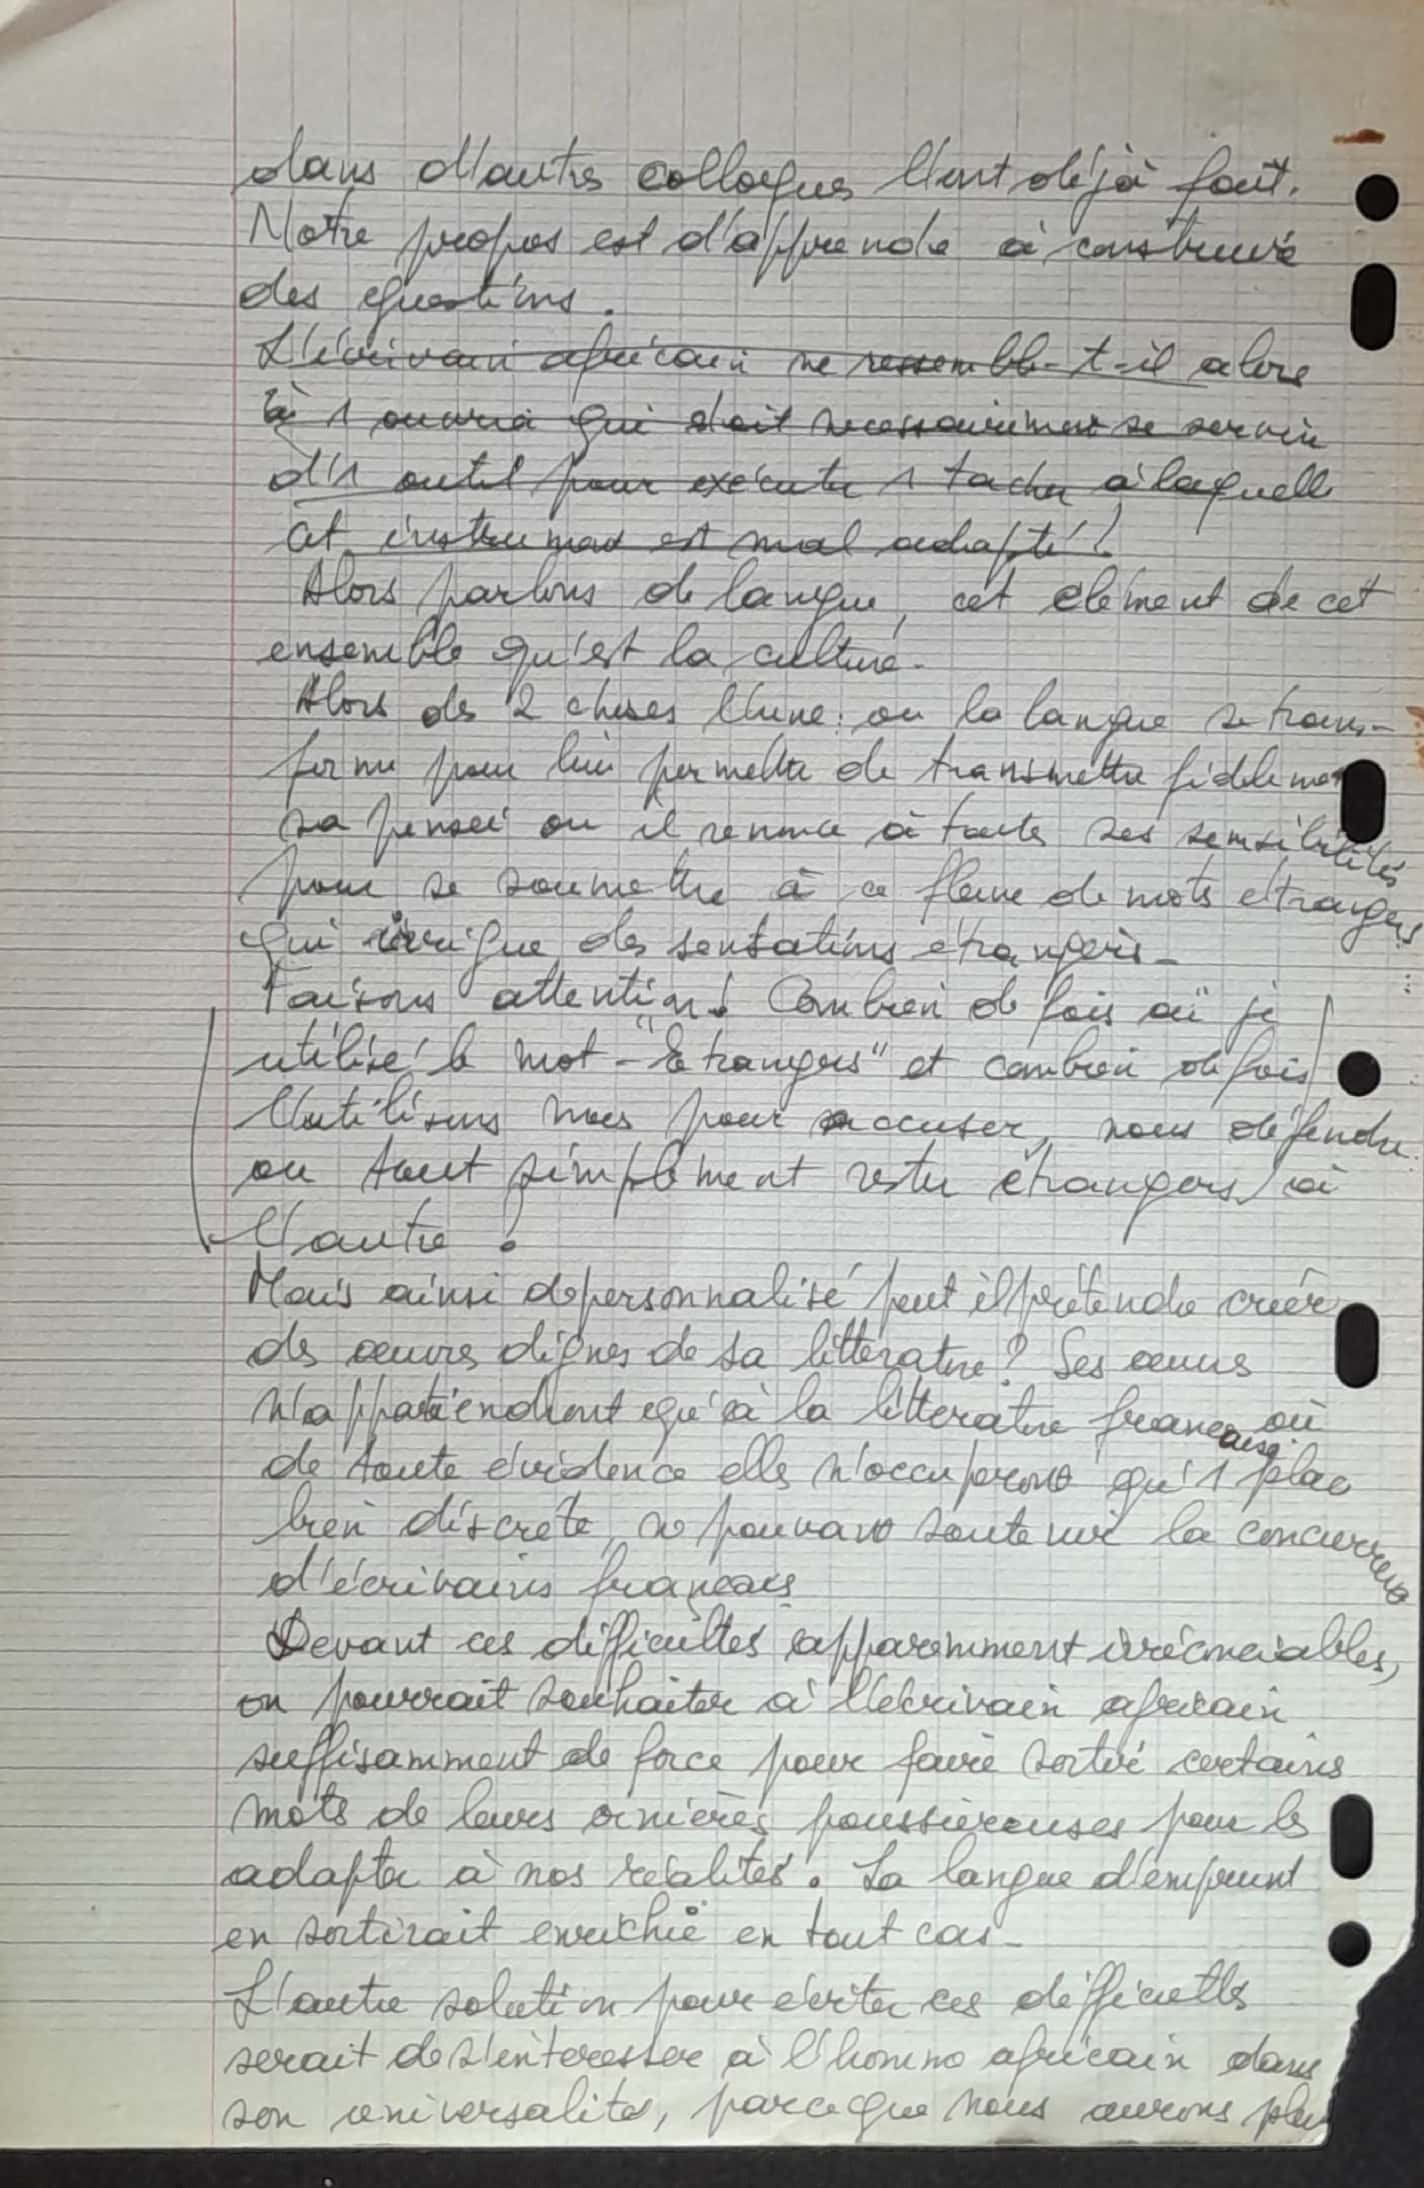 dans d'autres colloques l'ont déjà fait.
Notre propos est d'apprendre à construire
des questions.
L'écrivain africain ne ressemble-t-il alors
à 1 ouvrier qui doit necessairement se servir
d'1 outil pour exécuter 1 tache à laquelle
cet instrument est mal adapté?
Alors parlons de langue, cet élément de cet
ensemble qu'est la culture.
Alors des 2 choses l'une: ou la langue se trans-
forme pour lui permettre de transmettre fidelement
sa pensée ou il renonce à toutes ses sensibilités
pour se soumettre à ce fleuve de mots étrangers
qui irrigue des sensations étrangères.
Faisons attention! Combien de fois ai je
utilisé le mot "Etrangers" et combien de fois
l'utilisons nous pour accuser, nous défendre
ou tout simplement rester étrangers à
l'autre?
Mais ainsi depersonnalisé peut il prétendre créer
des œuvres dignes de sa litterature? Ses œuvres
n'appartiendront qu'à la litterature française où
de toute évidence elles n'occuperont qu'1 place
bien discrète, ne pouvant soutenir la concurrence
d'écrivains français
Devant ces difficultés apparemment
on pourrait souhaiter à l'écrivain africain
suffisamment de force pour faire sortir certains
mots de leurs ornières poussiéreuses pour les
adapter à nos réalités. La langue d'emprunt
en sortirait enrichie en tout cas.
L'autre solution pour éviter ces difficultés
serait de s'interesser à l'homme africain dans
son universalité, parce que nous aurons plus